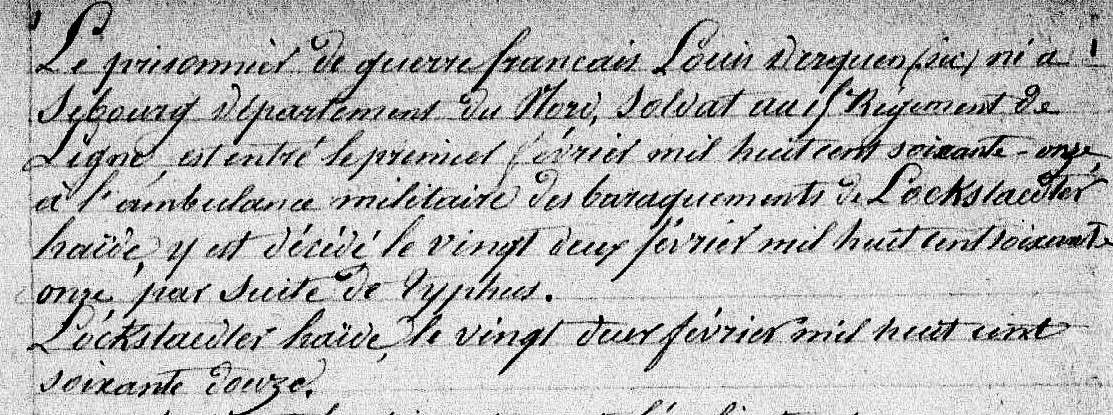 Le prisonnier de guerre français Louis Derquen (sic) né à
Sebourg département du Nord, soldat au Régiment de
Ligne, est entré le premier février mil huit cent soixante-onze
à l'ambulance militaire des baraquements de Lockstaedter
haïde, y est décédé le vingt deux février mil huit cent soixante
onze, par suite de Typhus.
Lockstaedter haïde, le vingt deux février mil huit cent
soixante douze.